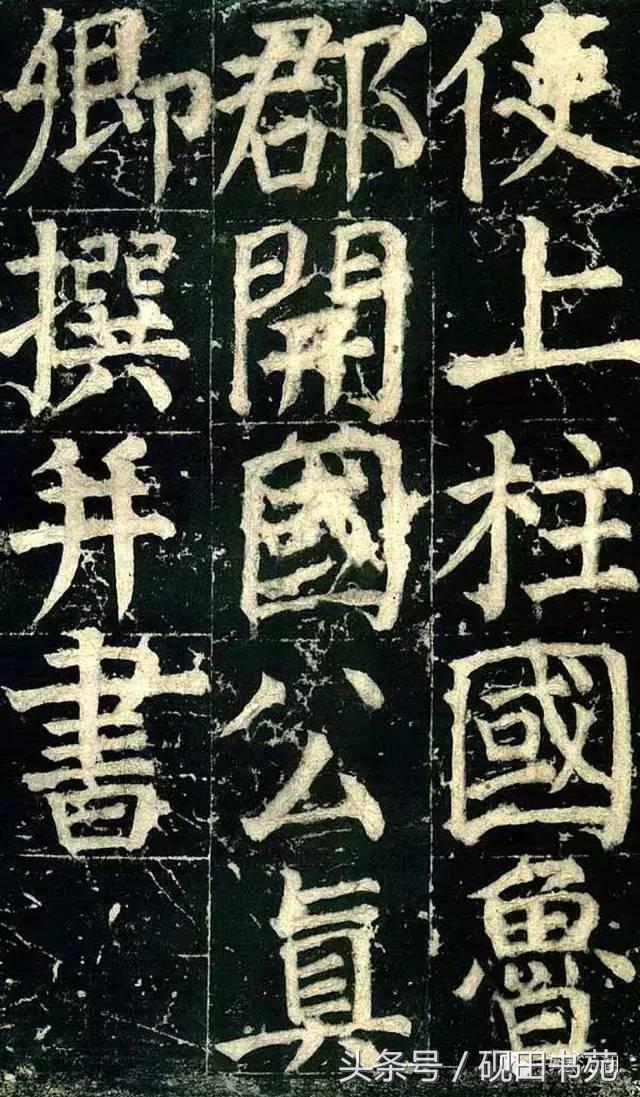 使上柱國魯
郡開國公真
卿撰并書
头条号 / 砚田书苑